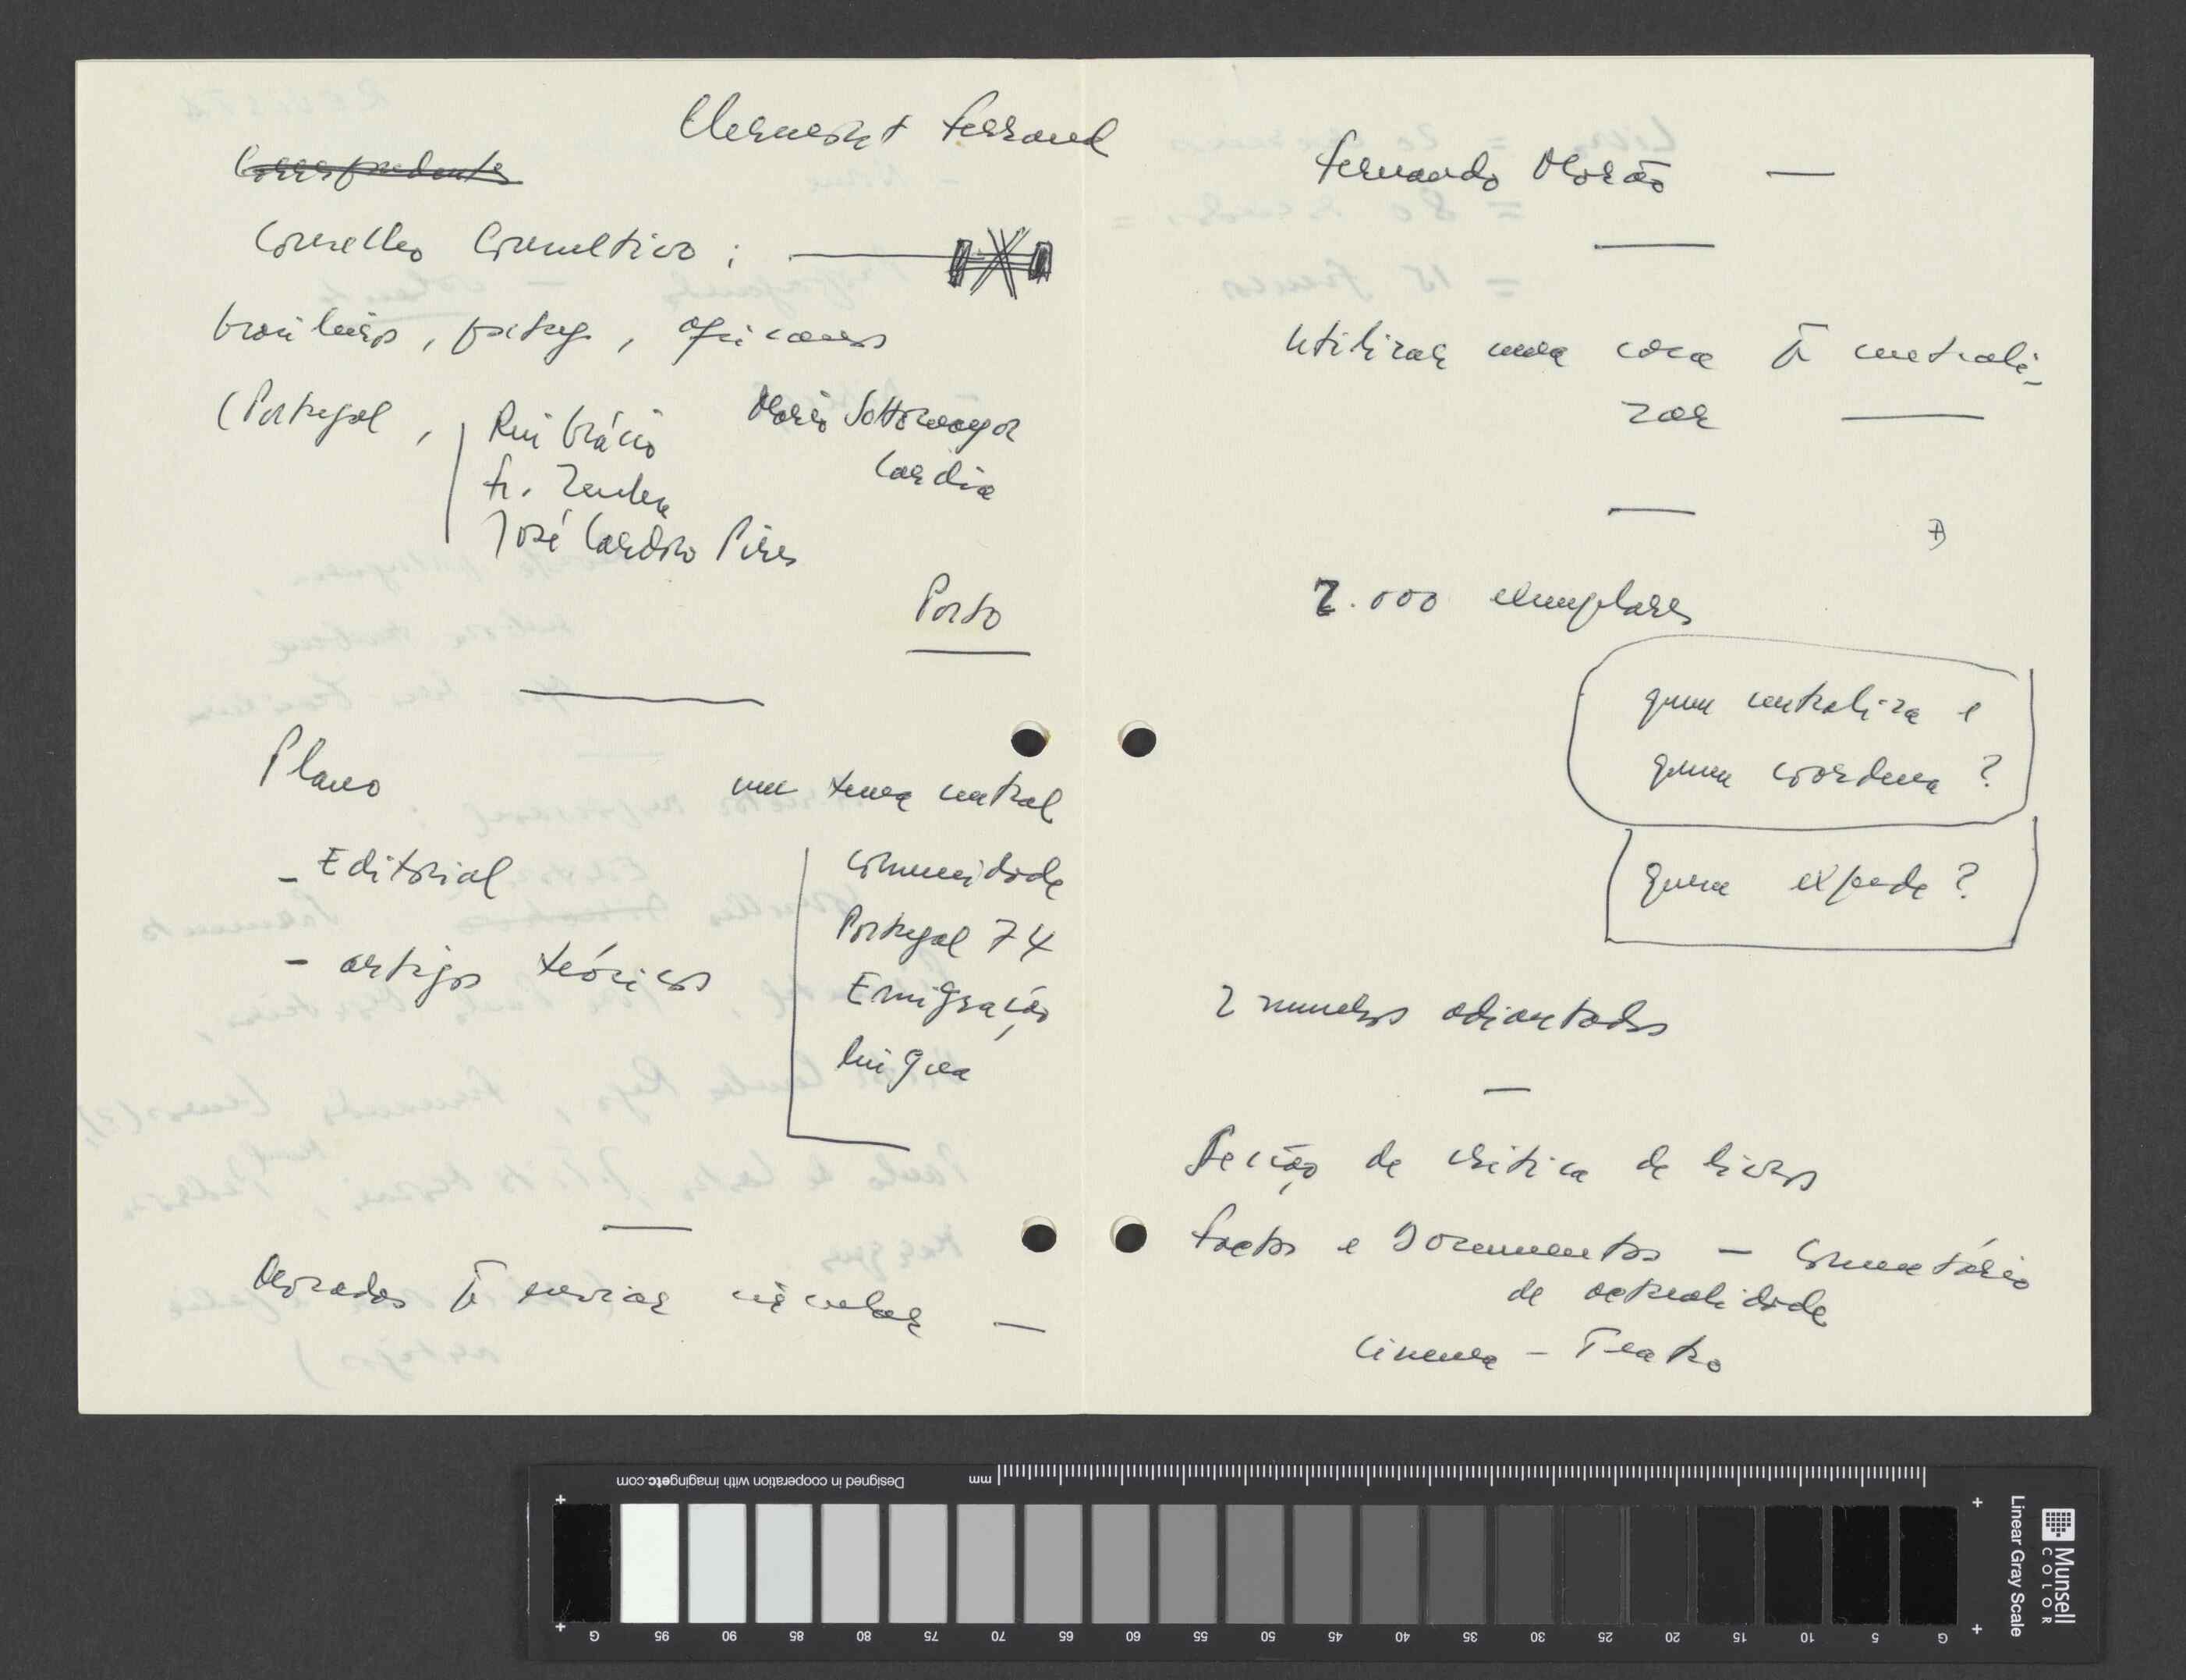 Clermont Ferrand
Correspondentes
Conselho Consultivo :
brasileiros, portug., africanos
(Portugal, Rui Grácio
Mário Sottomayor
Cardia
Fr. Zenha
José Cardoso Pires
Porto
Plano
um tema central
- Editorial
- artigos teóricos
comunidade
Portugal 74
Emigração
língua
Moradas p̄ enviar circular —
Fernando Mourão —
Utilizar uma casa p̄ centrali-
zar
2.000 exemplares
quem centraliza e
quem coordena ?
quem expede ?
2 numeros adiantados
Secção de critica de livros
Factos e Documentos — Comentário
de actualidade
Cinema - Teatro
Designed in cooperation with imagingetc.com
mm
G 95 90 85 80 75 70 65 60 55 50 45 40 35 30 25 20 15 10 5 G
Linear Gray Scale
Munsell
COLOR